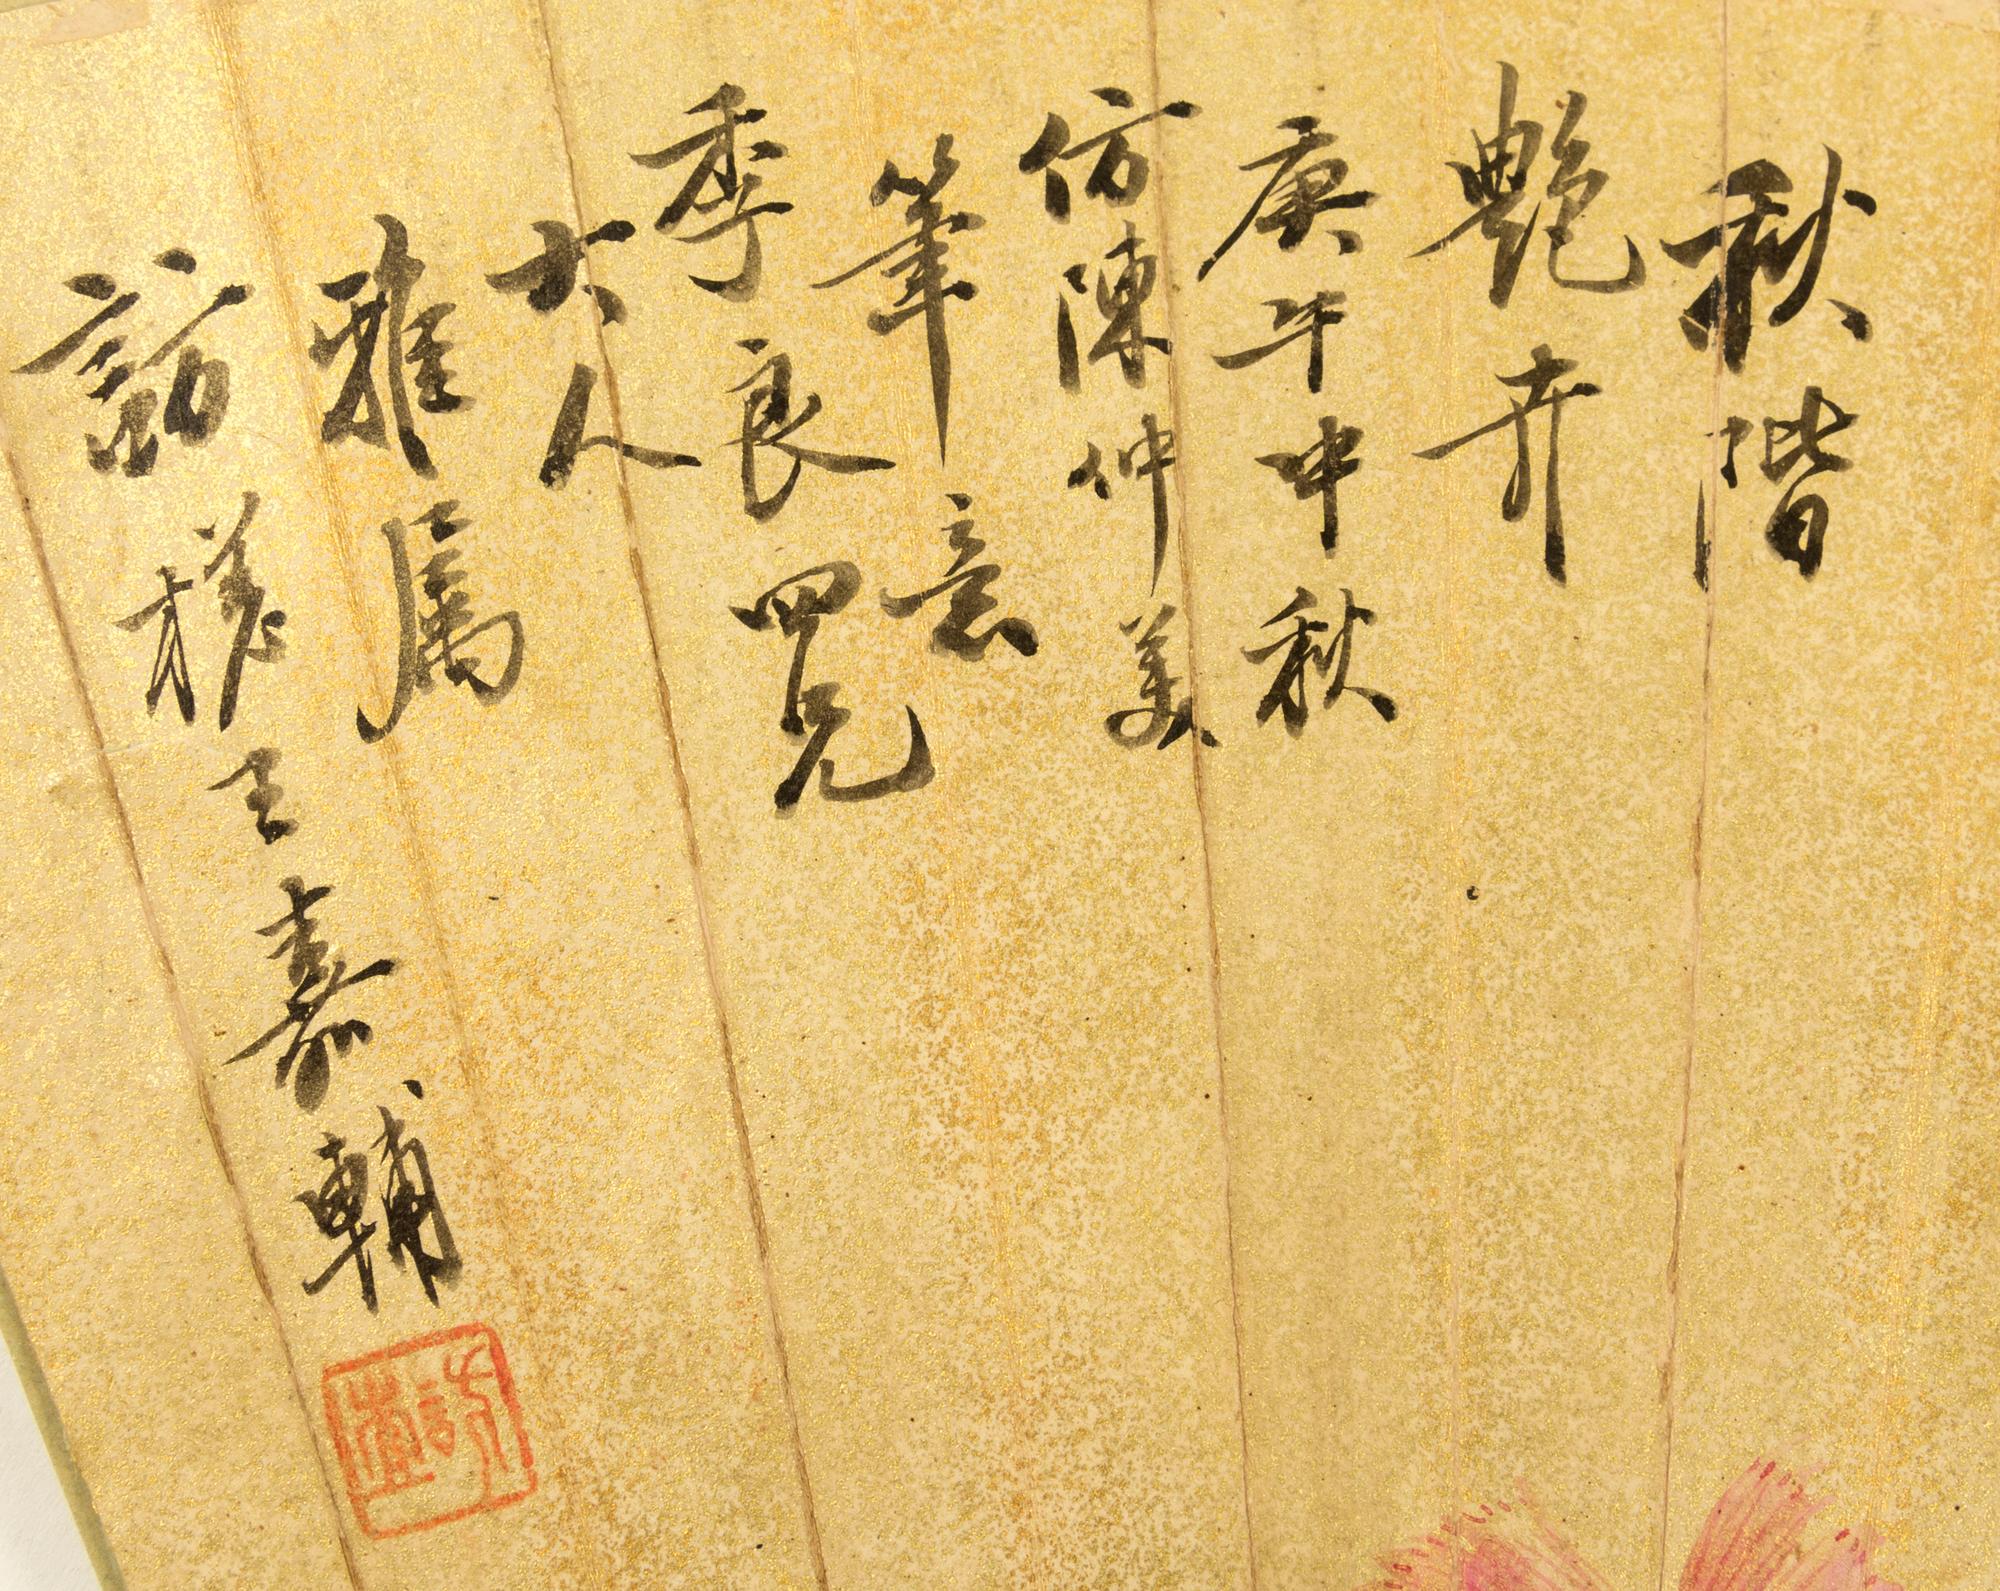 秋階
艷卉
庚午中秋
仿陳仲美
筆意
季良四兄
大人
雅属
訪樵王嘉輔